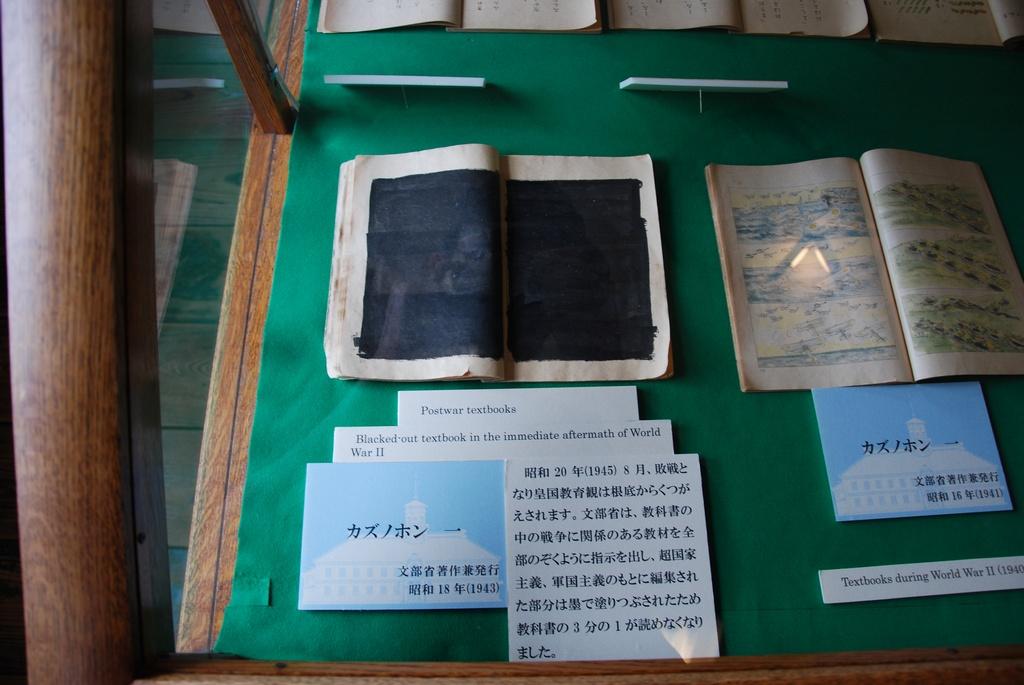 Postwar textbooks
Blacked-out textbook in the immediate aftermath of World
War II
カズノホン 一
文部省著作兼発行
昭和 18 年(1943)
昭和 20 年(1945) 8 月、敗戦と
なり皇国教育観は根底からくつが
えされます。文部省は、教科書の
中の戦争に関係のある教材を全
部のぞくように指示を出し、超国家
主義、軍国主義のもとに編集され
た部分は墨で塗りつぶされたため
教科書の 3 分の 1 が読めなくなり
ました。
カズノホン 一
文部省著作兼発行
昭和 16 年(1941)
Textbooks during World War II (1940